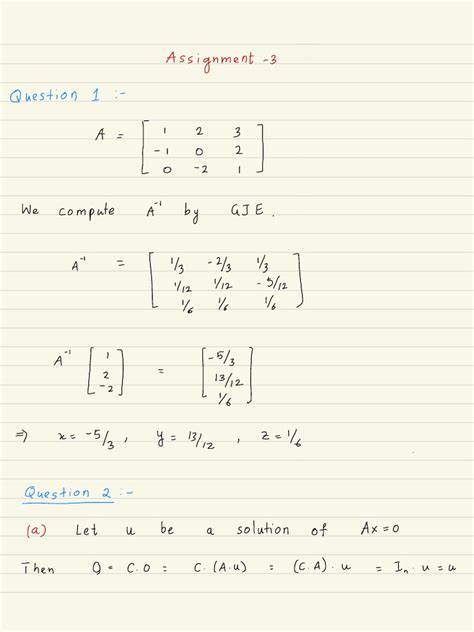 Assignment -3
Question 1 :-
A = [ 1 2 3
-1 0 2
0 -2 1 ]
We compute A⁻¹ by GJE.
A⁻¹ = [ 1/3 -2/3 1/3
1/12 1/12 -5/12
1/6 1/6 1/6 ]
A⁻¹ [ 1
2
-2 ] = [ -5/3
13/12
1/6 ]
⇒ x = -5/3 , y = 13/12 , z = 1/6
Question 2 :-
(a) Let u be a solution of Ax=0
Then 0 = C.0 = C.(A.u) = (C.A).u = Iₙ.u = u